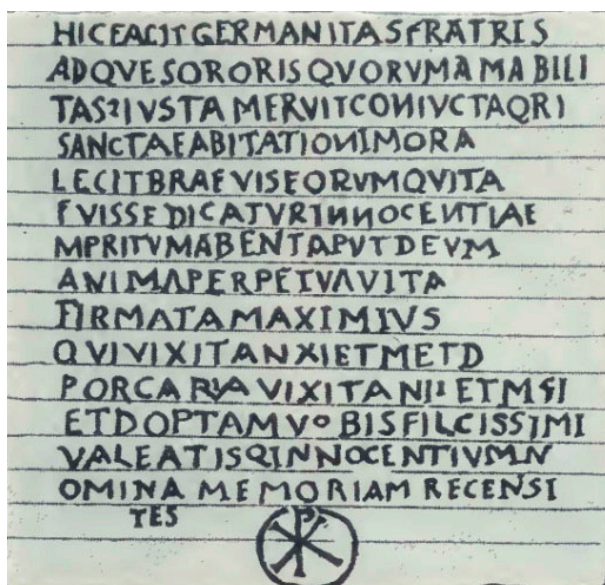 HICFACITGERMANITASFRATRIS
ADQVESORORISQVORVMAMABILI
TASꙄIVSTAMERVITCONIVCTAQRI
SANCTAEABITATIONIMORA
LECITBRAEVISEORVMQVITA
FVISSEDICATVRINNOCENTIAE
MPRITVMABENTAPVTDEVM
ANIMAPERPETVAVITA
FIRMATAMAXIMIVS
QVIVIXITANXIETMETD
PORCARIAVIXITANIIETMSI
ETDOPTAMVOBISFILCISSIMI
VALEATISQINNOCENTIVMN
OMINA MEMORIAM RECENSI
TES